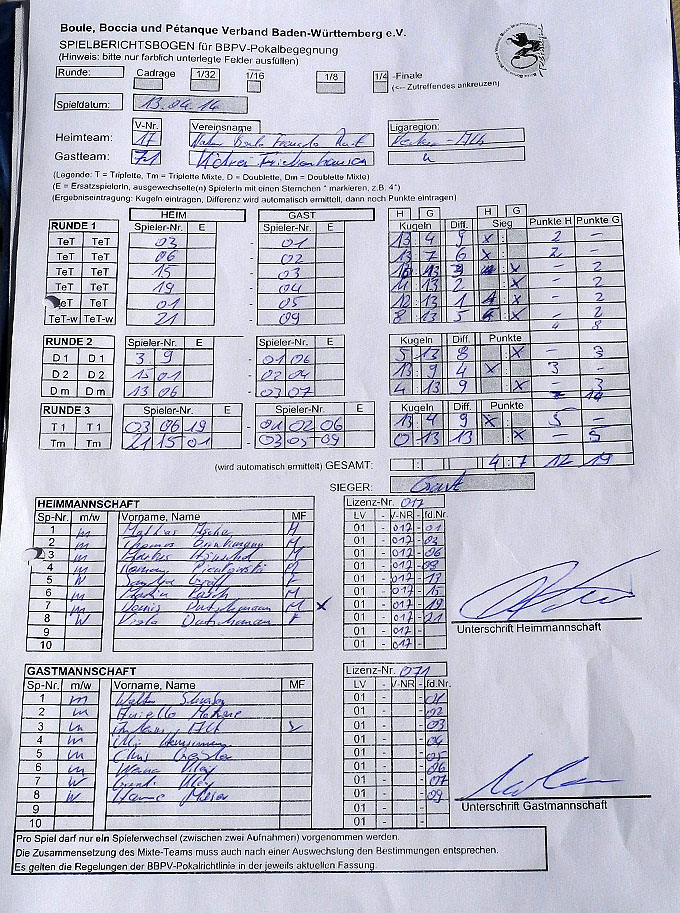 Boule, Boccia und Pétanque Verband Baden-Württemberg e.V.
SPIELBERICHTSBOGEN für BBPV-Pokalbegegnung
(Hinweis: bitte nur farblich unterlegte Felder ausfüllen)
Runde: Cadrage 1/32 1/16 1/8 1/4 -Finale
(<-- Zutreffendes ankreuzen)
Spieldatum: 13.04.14
V-Nr. Vereinsname Ligaregion:
Heimteam: 17 Neckar-Alb
Gastteam: 71 Frickenhausen
(Legende: T = Triplette, Tm = Triplette Mixte, D = Doublette, Dm = Doublette Mixte)
(E = ErsatzspielerIn, ausgewechselte(n) SpielerIn mit einem Sternchen * markieren, z.B. 4*)
(Ergebniseintragung: Kugeln eintragen, Differenz wird automatisch ermittelt, dann noch Punkte eintragen)
HEIM GAST H G H G
RUNDE 1 Spieler-Nr. E Spieler-Nr. E Kugeln Diff. Sieg Punkte H Punkte G
TeT TeT 03 - 01 13 4 9 x : 2 -
TeT TeT 06 - 02 13 7 6 x : 2 -
TeT TeT 15 - 03 10 13 3 : x - 2
TeT TeT 19 - 04 11 13 2 : x - 2
TeT TeT 01 - 05 12 13 1 : x - 2
TeT-w TeT-w 21 - 09 8 13 5 : x - 2
4 8
RUNDE 2 Spieler-Nr. E Spieler-Nr. E Kugeln Diff. Punkte
D 1 D 1 3 9 - 01 06 5 13 8 : x - 3
D 2 D 2 15 01 - 02 04 13 9 4 x : 3 -
D m D m 13 06 - 03 07 4 13 9 : x - 3
7 14
RUNDE 3 Spieler-Nr. E Spieler-Nr. E Kugeln Diff. Punkte
T 1 T 1 03 06 19 - 01 02 06 13 4 9 x : 5 -
Tm Tm 21 15 01 - 03 05 09 0 13 13 : x - 5
(wird automatisch ermittelt) GESAMT: : 4 : 7 12 19
SIEGER: Gast
HEIMMANNSCHAFT Lizenz-Nr. 017
Sp-Nr. m/w Vorname, Name MF LV - V-NR - lfd.Nr.
1 m M 01 - 017 - 01
2 m Thomas Brinkmann M 01 - 017 - 03
3 m Markus M 01 - 017 - 06
4 m Roman M 01 - 017 - 08
5 w Sandra F 01 - 017 - 13
6 m Martin M 01 - 017 - 15
7 m Denis M x 01 - 017 - 19
8 w Viola F 01 - 017 - 21
9 01 - 017 -
10 01 - 017 -
Unterschrift Heimmannschaft
GASTMANNSCHAFT Lizenz-Nr. 071
Sp-Nr. m/w Vorname, Name MF LV - V-NR - lfd.Nr.
1 m Walter 01 - - 01
2 m 01 - - 02
3 m 01 - - 03
4 m 01 - - 04
5 m 01 - - 05
6 m 01 - - 06
7 w 01 - - 07
8 w 01 - - 09
9 01 - -
10 01 - -
Unterschrift Gastmannschaft
Pro Spiel darf nur ein Spielerwechsel (zwischen zwei Aufnahmen) vorgenommen werden.
Die Zusammensetzung des Mixte-Teams muss auch nach einer Auswechslung den Bestimmungen entsprechen.
Es gelten die Regelungen der BBPV-Pokalrichtlinie in der jeweils aktuellen Fassung.